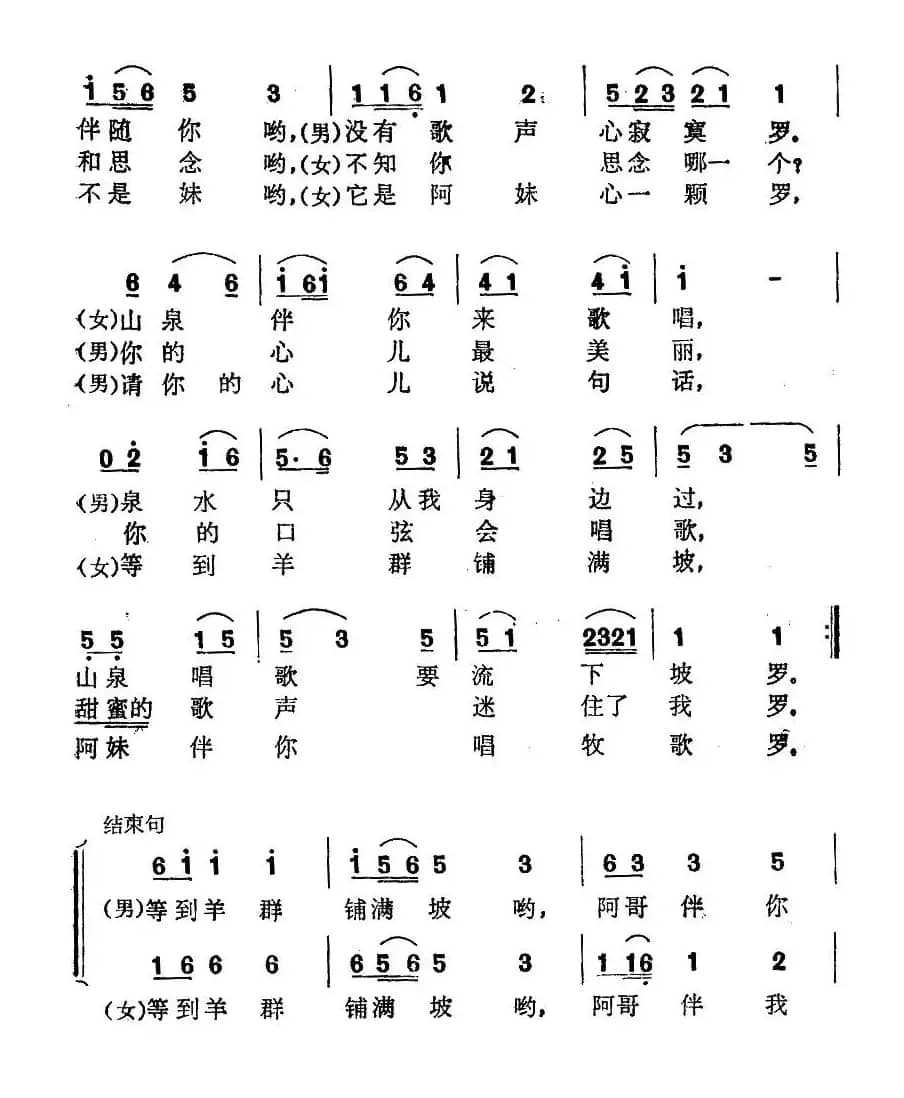 i 5 6 5 3 | 1 1 6 1 2 | 5 2 3 2 1 1
伴随你哟,(男)没有歌声心寂寞罗。
和思念哟,(女)不知你思念哪一个?
不是妹哟,(女)它是阿妹心一颗罗,
6 4 6 | i 6 i 6 4 | 4 1 4 i | i - |
(女)山泉伴你来歌唱,
(男)你的心儿最美丽,
(男)请你的心儿说句话,
0 2 i 6 | 5· 6 5 3 | 2 1 2 5 | 5 3 5 |
(男)泉水只从我身边过,
你的口弦会唱歌,
(女)等到羊群铺满坡,
5 5 1 5 | 5 3 5 | 5 1 2321 | 1 1 :‖
山泉唱歌要流下坡罗。
甜蜜的歌声迷住了我罗。
阿妹伴你唱牧歌罗。
结束句
6 i i i | i 5 6 5 3 | 6 3 3 5 |
(男)等到羊群铺满坡哟,阿哥伴你
1 6 6 6 | 6 5 6 5 3 | 1 1 6 1 2 |
(女)等到羊群铺满坡哟,阿哥伴我